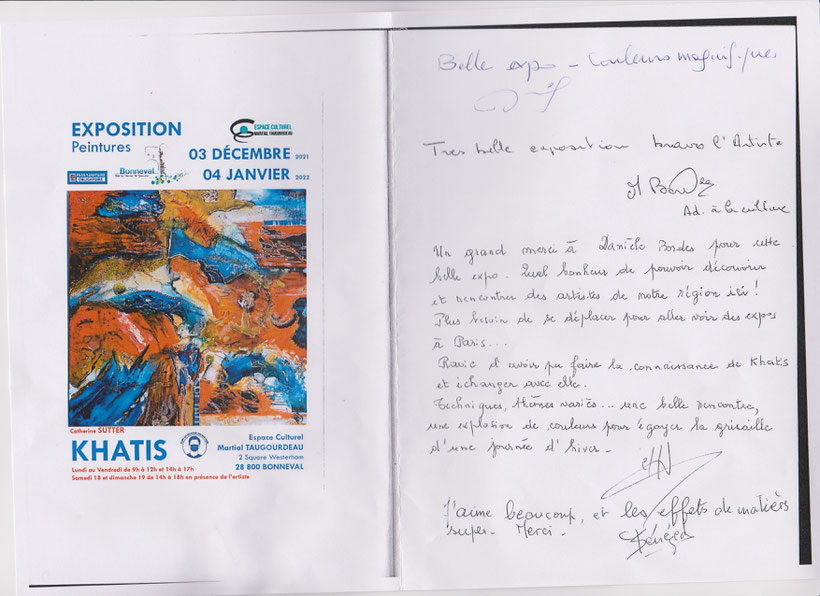 EXPOSITION
Peintures
ESPACE CULTUREL
MARTIAL TAUGOURDEAU
Bonneval
03 DÉCEMBRE 2021
04 JANVIER 2022
Catherine SUTTER
KHATIS
Lundi au Vendredi de 9h à 12h et 14h à 17h
Samedi 18 et dimanche 19 de 14h à 18h en présence de l'artiste
Espace Culturel
Martial TAUGOURDEAU
2 Square Westerham
28 800 BONNEVAL
Belle expo - Couleurs magnifiques
Très belle exposition bravo l'Artiste
Ad. à la culture
Un grand merci à Danièle Bordes pour cette
belle expo. Quel bonheur de pouvoir découvrir
et rencontrer des artistes de notre région ici !
Plus besoin de se déplacer pour aller voir des expos
à Paris...
Ravie d'avoir pu faire la connaissance de Khatis
et échanger avec elle.
Techniques, thèmes variés... une belle rencontre,
une explosion de couleurs pour égayer la grisaille
d'une journée d'hiver -
J'aime beaucoup, et les effets de matièrs
super - Merci -